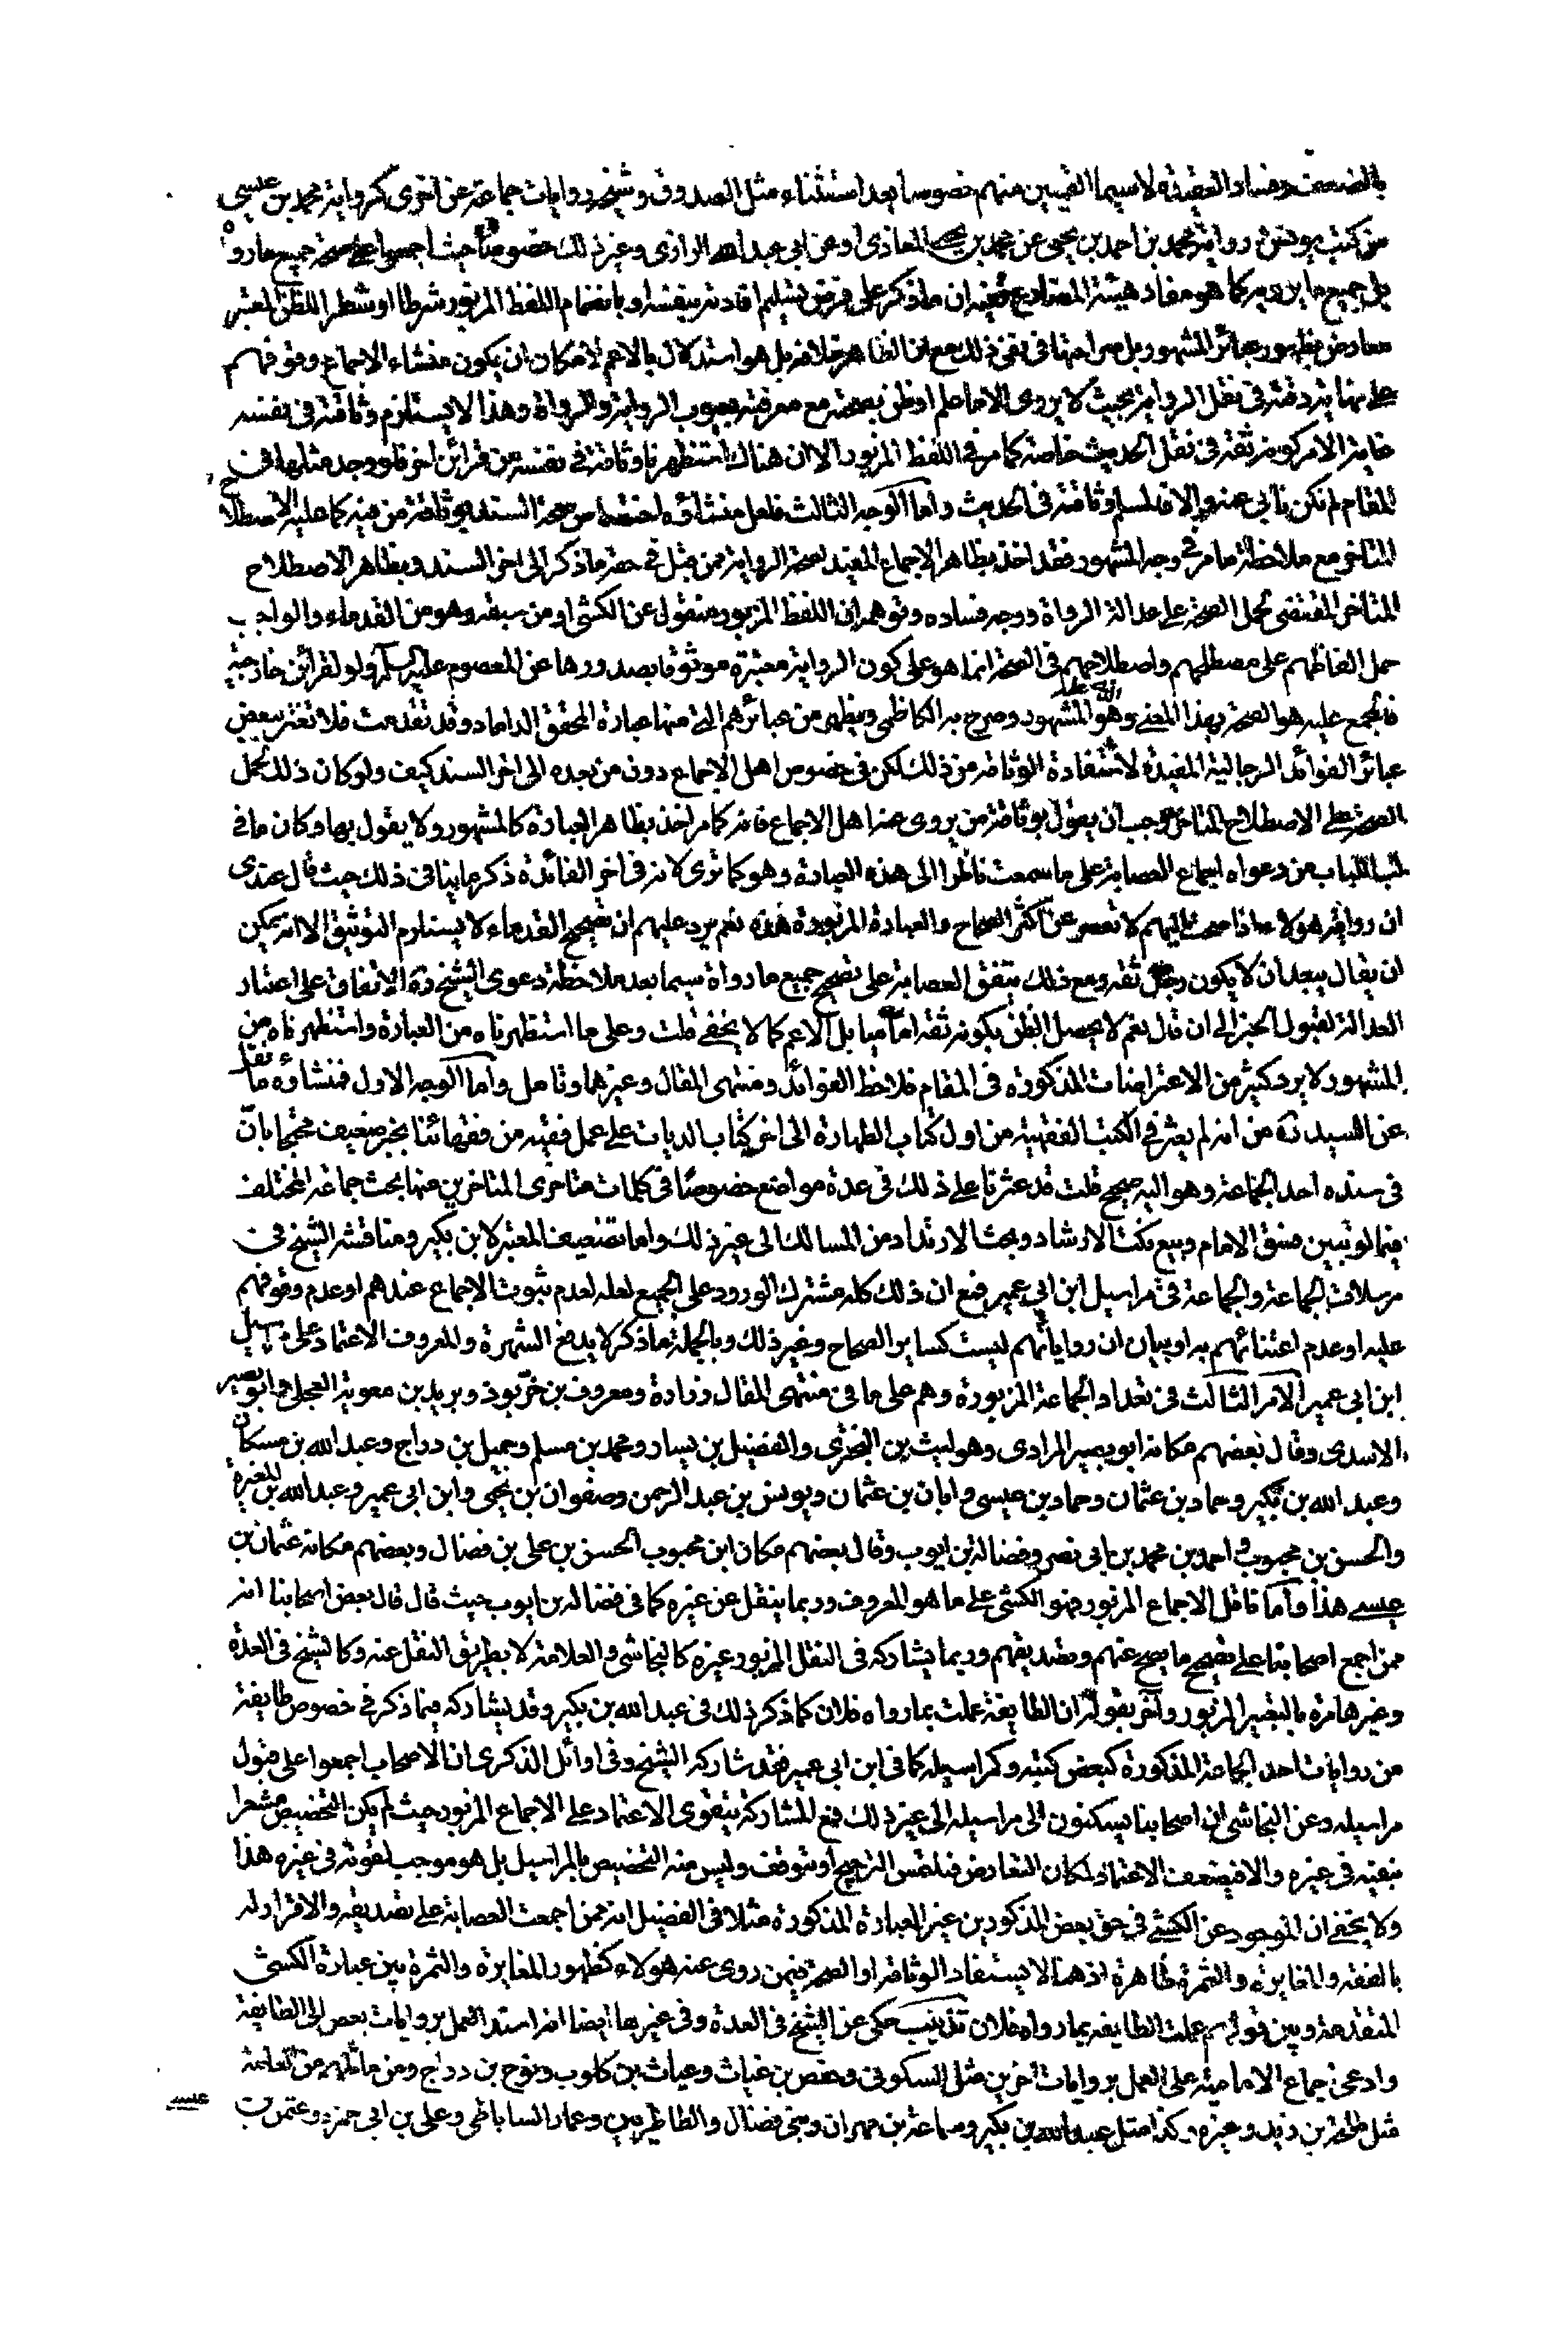 بالضعف وفساد العقيدة لاسيما القميين منهم خصوصا بعد استثناء مثل الصدوق وشيخه روايات جماعة عن اخرى كرواية محمد بن عيسى
من كتب يونس ورواية محمد بن احمد بن يحيى عن محمد بن يحيى المعاذى او عن ابي عبد الله الرازى وغير ذلك خصوصا حيث اجمعوا على صحة جميع ما رووه
بل جميع ما يرويه كما هو مفاد هيئة المضارع ففيه ان ما ذكر على فرض تسليم افادته بنفسه او بانضمام اللفظ المزبور شرطا او شطرا للظن المعتبر
معارض بظهور عبائر المشهور بل صراحتها فى نفى ذلك مع ان الظاهر خلافه بل هو استدلال بالاعم لامكان ان يكون منشاء الاجماع وقوفهم
على نهاية دقته فى نقل الرواية بحيث لا يروى الا ما علم او ظن بصحته مع معرفته بعيوب الرواية والرواة وهذا لا يستلزم وثاقته فى نفسه
غاية الامر كونه ثقة فى نقل الحديث خاصة كما مر فى اللفظ المزبور الا ان هناك استظهرنا وثاقته فى نفسه من قرائن اخر فلو وجد مثلها فى
المقام لم نكن نابى عنه والا فالمسلم وثاقته فى الحديث واما الوجه الثالث فلعل منشاؤه صحة السند بوثاقة من فيه كما عليه الاصطلاح
المتاخر مع ملاحظة ما مر فى وجه المشهور فقد اخذ بظاهر الاجماع المفيد لصحة الرواية من قبل فى حقه ما ذكر الى اخر السند وبظاهر الاصطلاح
المتاخر المقتضى لحمل الصحة على عدالة الرواة ووجه فساده وتوهمه ان اللفظ المزبور منقول عن الكشى او من سبقه وهو من القدماء والواجب
حمل الفاظهم على مصطلحهم واصطلاحهم فى الصحة انما هو على كون الرواية معتبرة موثوقا بصدورها عن المعصوم عليه السلام ولو لقرائن خارجية
فالمجمع عليه هو الصحة بهذا المعنى وهو المشهور وصرح به الكاظمى ويظهر من عبائرهم التى منها عبارة المحقق الداماد وقد تقدمت فلا تغتر ببعض
عبائر الفوائد الرجالية المفيدة لاستفادة الوثاقة من ذلك لكن فى خصوص اهل الاجماع دون من بعده الى اخر السند كيف ولو كان ذلك لحمل
الصحة على الاصطلاح المتاخر لوجب ان يقول بوثاقة من يروى عنه اهل الاجماع فانه كما مر اخذ بظاهر العبارة كالمشهور ولا يقول بها وكان ما فى
لب اللباب من دعواه اجماع العصابة على ما سمعت ناظرا الى هذه العبارة وهو كما ترى لانه فى اخر الفائدة ذكر ما ينافى ذلك حيث قال عندى
ان رواية هؤلاء اذا صحت اليهم لا تقصر عن اكثر الصحاح والعبارة المزبورة هذه نعم يرد عليهم ان تصحيح القدماء لا يستلزم التوثيق الا انه يمكن
ان يقال يبعد ان لا يكون رجل ثقة ومع ذلك يتفق العصابة على تصحيح جميع ما رواه سيما بعد ملاحظة دعوى الشيخ ره الاتفاق على اعتبار
العدالة لقبول الخبر الى ان قال نعم لا يحصل الظن بكونه ثقة اماميا بل الاعم كما لا يخفى قلت وعلى ما استظهرناه من العبارة واستظهرناه من
المشهور لا يرد كثير من الاعتراضات المذكورة فى المقام فلاحظ الفوائد ومنتهى المقال وغيرهما وتامل واما الوجه الاول فمنشاؤه ما نقل
عن السيد ره من انه لم يعثر فى الكتب الفقهية من اول كتاب الطهارة الى اخر كتاب الديات على عمل فقيه من فقهائنا بخبر ضعيف محتجا بان
فى سنده احد الجماعة وهو اليه صحيح قلت قد عثرنا على ذلك فى عدة مواضع خصوصا فى كلمات متاخرى المتاخرين منها بحث جماعة المختلف
فيما لو تبين فسق الامام وبيع نكت الارشاد وبحث الارتداد من المسالك الى غير ذلك واما تضعيف المعتبر لابن بكير ومناقشة الشيخ فى
مرسلات الجماعة والجماعة فى مراسيل ابن ابي عمير فمع ان ذلك كله مشترك الورود على الجميع لعله لعدم ثبوت الاجماع عندهم او عدم وقوفهم
عليه او عدم اعتنائهم به او بيان ان رواياتهم ليست كساير الصحاح وغير ذلك وبالجملة ما ذكر لا يدفع الشهرة والمعروف الاعتماد على مراسيل
ابن ابى عمير الامر الثالث فى تعداد الجماعة المزبورة وهم على ما فى منتهى المقال زرارة ومعروف بن خربوذ وبريد بن معوية العجلى وابو بصير
الاسدى وقال بعضهم مكانه ابو بصير المرادى وهو ليث بن البخترى والفضيل بن يسار ومحمد بن مسلم وجميل بن دراج وعبد الله بن مسكان
وعبد الله بن بكير وحماد بن عثمان وحماد بن عيسى وابان بن عثمان ويونس بن عبد الرحمن وصفوان بن يحيى وابن ابى عمير وعبد الله بن المغيرة
والحسن بن محبوب واحمد بن محمد بن ابى نصر وفضالة بن ايوب وقال بعضهم مكان ابن محبوب الحسن بن على بن فضال وبعضهم مكانه عثمان بن
عيسى هذا واما ناقل الاجماع المزبور فهو الكشى على ما هو المعروف وربما ينقل عن غيره كما فى فضالة بن ايوب حيث قال قال بعض اصحابنا انه
ممن اجمع اصحابنا على تصحيح ما يصح عنهم وتصديقهم وربما يشاركه فى النقل المزبور غيره كالنجاشى والعلامة لا بطريق النقل عنه وكالشيخ فى العدة
وغيرها مرة بالتعبير المزبور واخر بقوله ان الطايفة عملت بما رواه فلان كما ذكر ذلك فى عبد الله بن بكير وقد يشاركه فيما ذكر فى خصوص طايفة
من روايات احد الجماعة المذكورة كبعض كتبه وكمراسيله كما فى ابن ابى عمير فقد شاركه الشيخ وفى اوائل الذكرى ان الاصحاب اجمعوا على قبول
مراسيله وعن النجاشى ان اصحابنا يسكنون الى مراسيله الى غير ذلك فمع المشاركة يتقوى الاعتماد على الاجماع المزبور حيث لم يكن التخصيص مشعرا
بنفيه فى غيره والا فيضعف الاعتماد لمكان التعارض فيلتمس الترجيح او يتوقف وليس منه التخصيص بالمراسيل بل هو موجب لقوته فى غيره هذا
ولا يخفى ان الموجود عن الكشى فى حق بعض المذكورين غير العبارة المذكورة مثلا فى الفضيل انه ممن اجمعت العصابة على تصديقه والاقرار له
بالفقه والمغايرة والثمرة ظاهرة اذ هنا لا يستفاد الوثاقة او الصحة فيمن روى عنه هؤلاء كظهور المغايرة والثمرة بين عبارة الكشى
المتقدمة وبين قولهم عملت الطايفة بما رواه فلان تذنيب حكى عن الشيخ فى العدة وفى غيرها ايضا انه اسند العمل بروايات بعض الى الطايفة
وادعى اجماع الامامية على العمل بروايات اخرين مثل السكونى وحفص بن غياث وغياث بن كلوب ونوح بن دراج ومن ماثلهم من العامة
مثل طلحة بن زيد وغيره وكذا مثل عبد الله بن بكير وسماعة بن مهران وبنى فضال والطاطريين وعمار الساباطى وعلى بن ابى حمزة وعثمن بن
عيسى